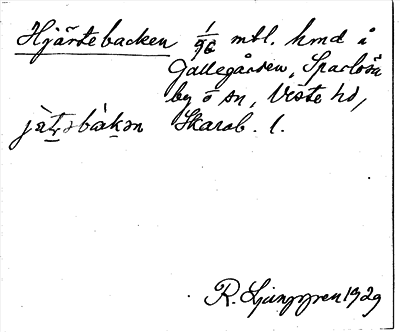 Hjärtebacken 1/96 mtl. hmd å
Gallegården, Sparlösa
by o sn, Viste hd,
jàt̯əbàkən Skarab. l.
R. Ljunggren 1929